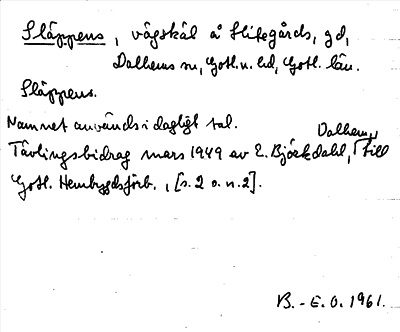 Släppens, vägskäl å Hifegårds, gd,
Dalhems sn, Gotl. n. hd, Gotl. län.
Släppens.
Namnet används i dagligt tal.
Tävlingsbidrag mars 1949 av E. Björkdahl, Dalhem, till
Gotl. Hembygdsförb., [s. 2 o. n. 2].
B. - E. O. 1961.